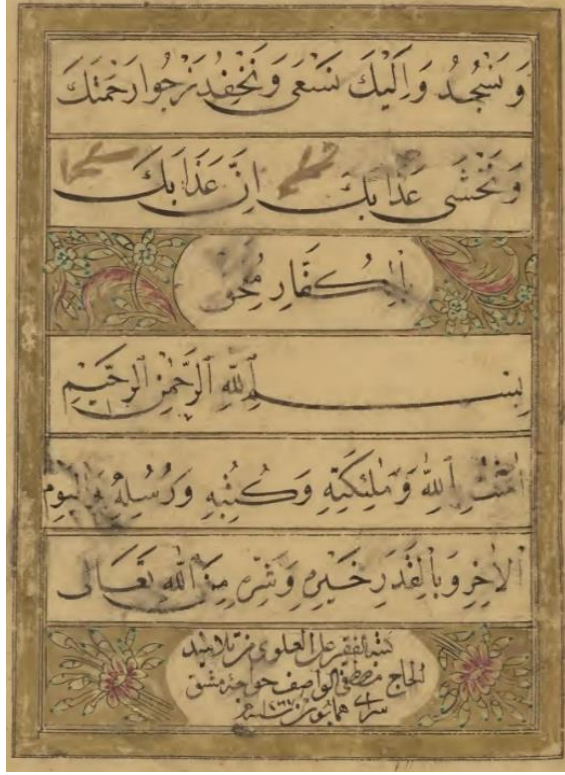 وَنَسْجُدُ وَاِلَيْكَ نَسْعٰى وَنَحْفِدُ نَرْجُوا رَحْمَتَكَ
وَنَخْشٰى عَذَابَكَ اِنَّ عَذَابَكَ
بِالْكُفَّارِ مُلْحِقٌ
بِسْمِ ٱللّٰهِ ٱلرَّحْمٰنِ ٱلرَّحِيْمِ
اٰمَنْتُ بِٱللّٰهِ وَمَلٰئِكَتِهِ وَكُتُبِهِ وَرُسُلِهِ وَالْيَوْمِ
الْاٰخِرِ وَبِالْقَدَرِ خَيْرِهِ وَشَرِّهِ مِنَ اللّٰهِ تَعَالٰى
كتبه الفقير على العلوى من تلاميذ
الحاج مصطفى الواصف خواجهٔ مشق
سراى همايون